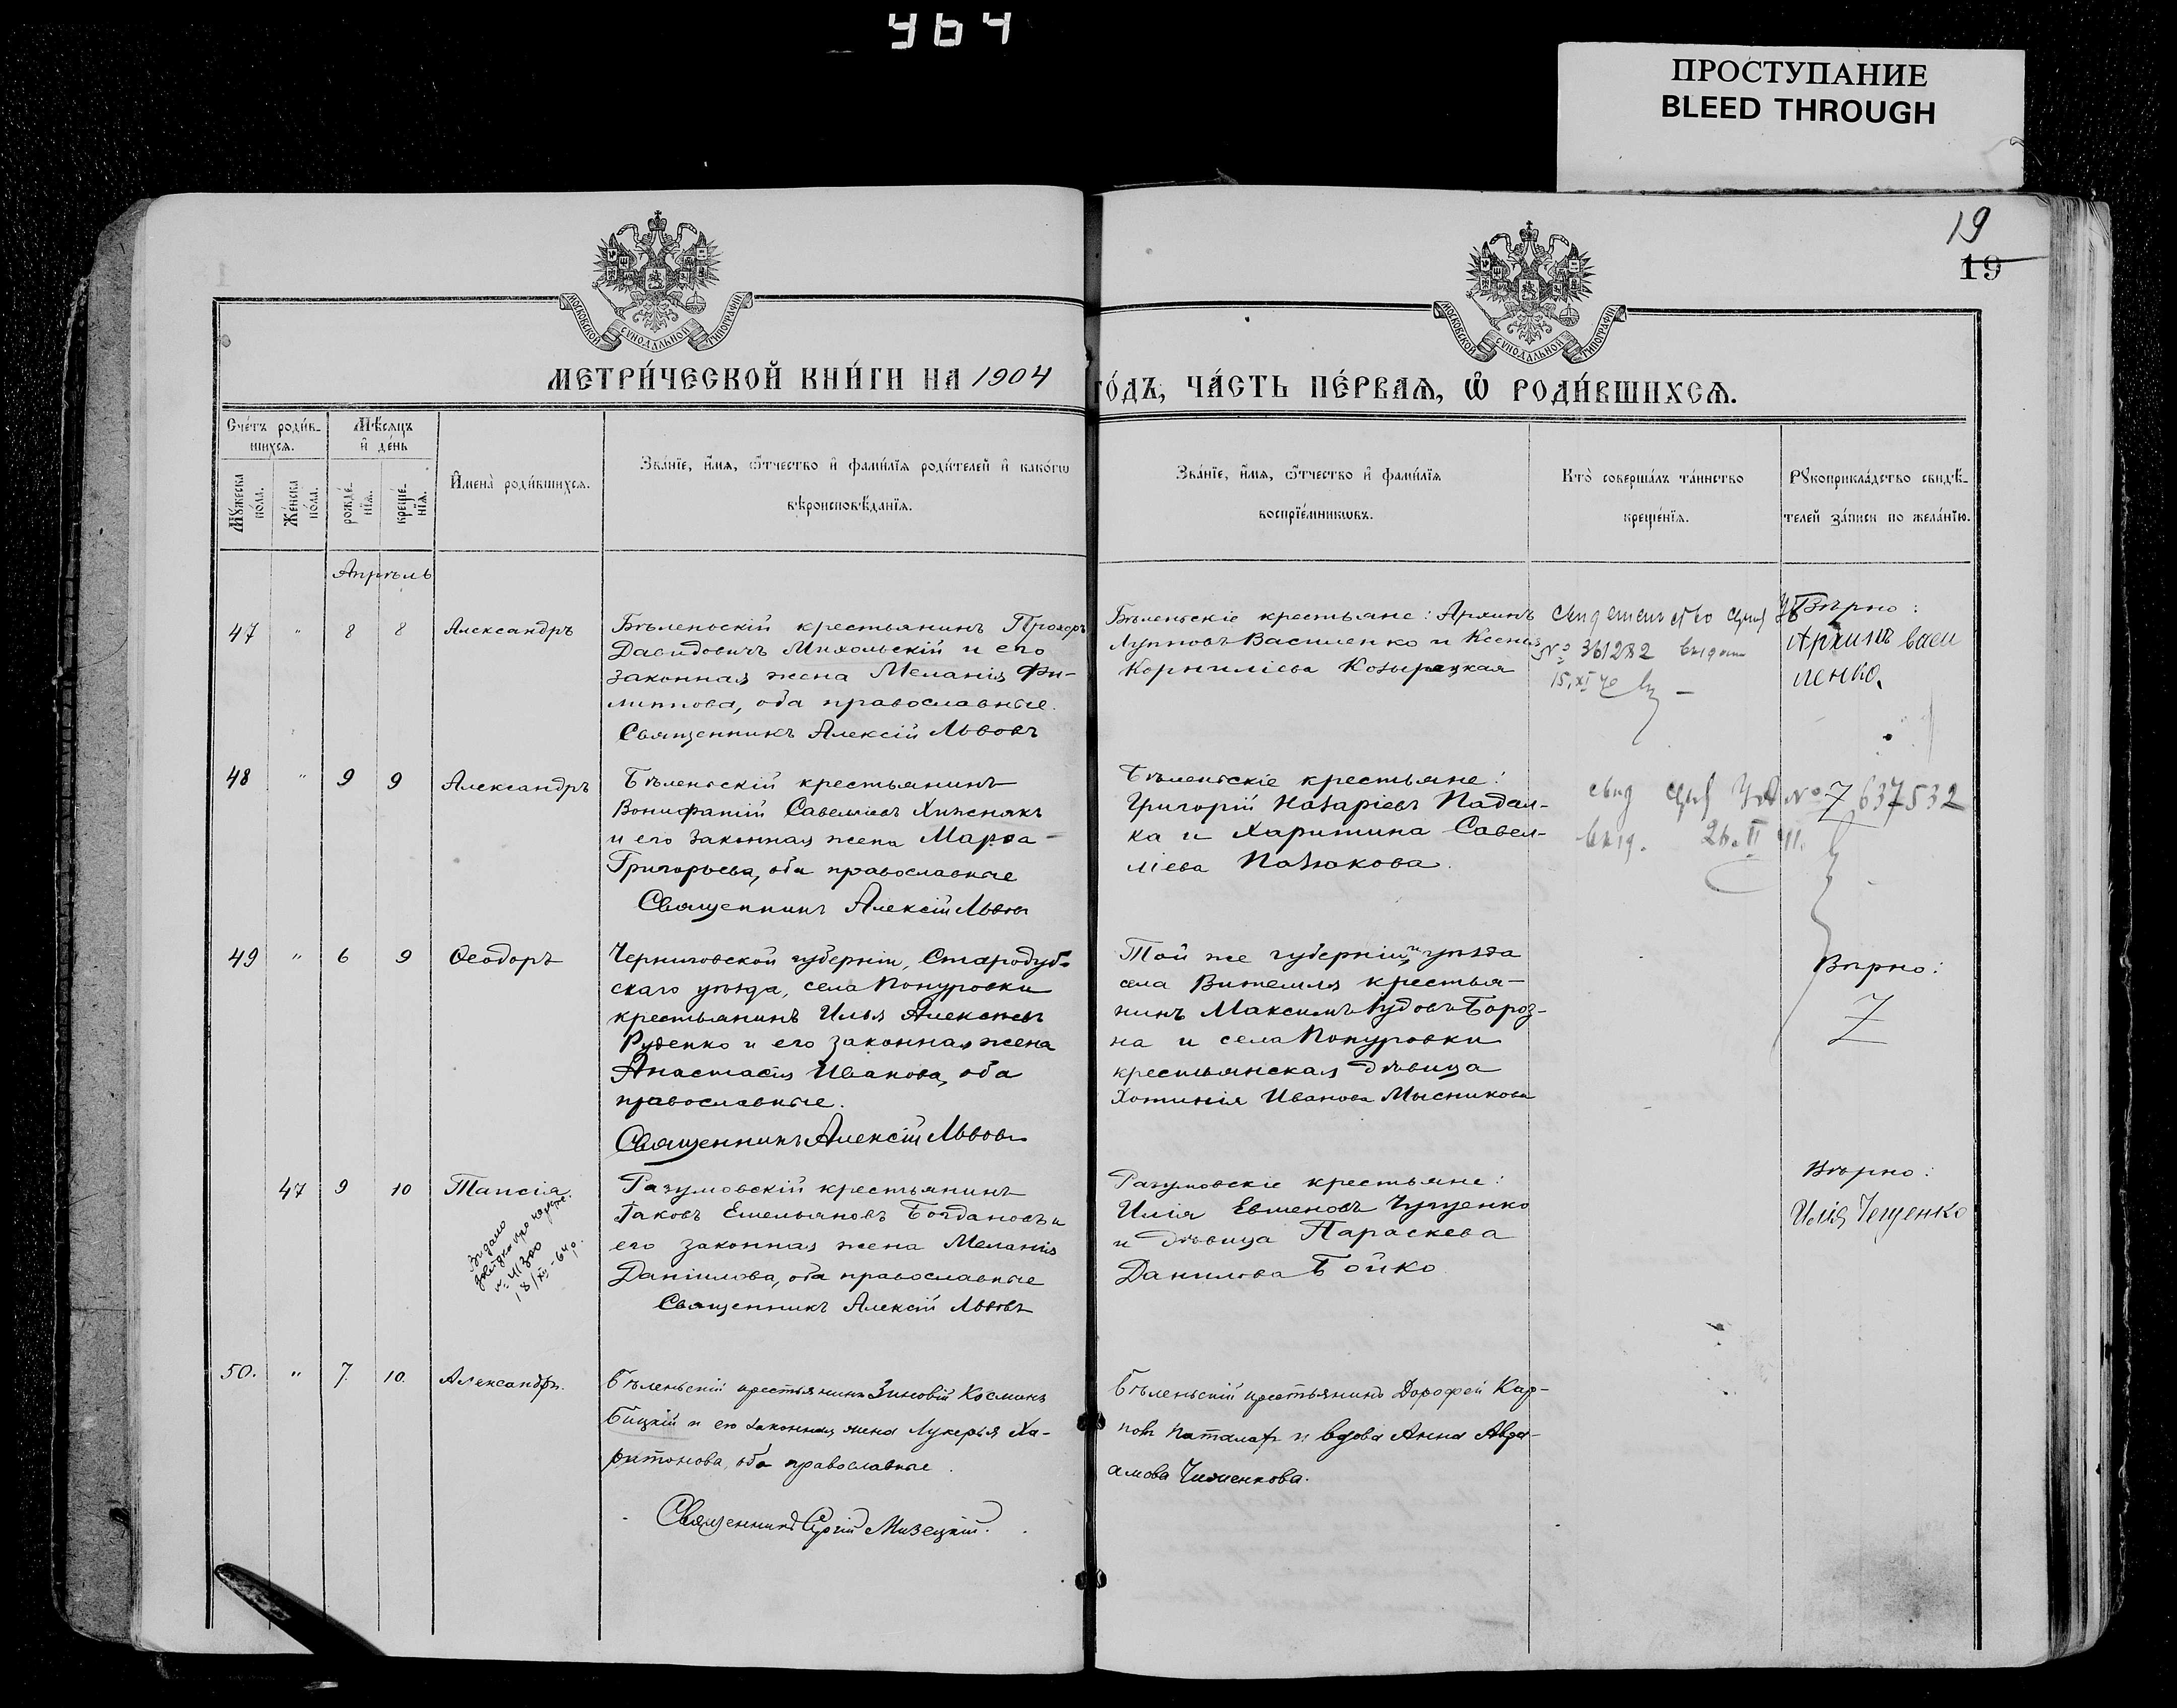 464
ПРОСТУПАНИЕ
BLEED THROUGH
19
19
МОСКОВСКОЙ СѴНОДАЛЬНОЙ ТИПОГРАФІИ
МОСКОВСКОЙ СѴНОДАЛЬНОЙ ТИПОГРАФІИ
МЕТРИ́ЧЕСКОЙ КНИ́ГИ НА 1904
ГО́ДЪ, ЧА́СТЬ ПЕ́РВАѦ, Ѽ РОДИ́ВШИХСѦ.
Сче́тъ роди́в-
шихсѧ.
Мѣ́сѧцъ
и҆ де́нь
Мꙋ́жеска по́ла.
Же́нска по́ла.
рожде́-
нїѧ.
креще́-
нїѧ.
И҆мена̀ роди́вшихсѧ.
Зва́нїе, и҆́мѧ, ѻ҆́тчество и҆ фами́лїѧ роди́телей и҆ како́гѡ
вѣроисповѣ́данїѧ.
Зва́нїе, и҆́мѧ, ѻ҆́тчество и҆ фами́лїѧ
воспрїе́мникѡвъ.
Кто̀ соверша́лъ та́инство
креще́нїѧ.
Рꙋкоприкла́дство свидѣ́-
телей за́писи по жела́нїю.
Апрѣль
47 " 8 8 Александръ
Бѣленьскій крестьянинъ Прохоръ
Давидовичъ Михольскій и его
законная жена Меланія Фи-
липпова, оба православные.
Священникъ Алексій Львовъ
Бѣленьскіе крестьяне: Архипъ
Лупповъ Василенко и Ксенія
Корниліева Козырецкая
№ 361282
15.XI
Вѣрно:
Архипъ Васи
ленко.
48 " 9 9 Александръ
Бѣленьскій крестьянинъ
Вонифатій Савелліевъ Хижнякъ
и его законная жена Марѳа
Григорьева, оба православные
Священникъ Алексій Львовъ
Бѣленьскіе крестьяне:
Григорій Назаріевъ Падал-
ка и Харитина Савел-
ліева Позюкова.
свид № 7 637532
выд. 26.II
49 " 6 9 Ѳеодоръ
Черниговской губерніи, Стародуб-
скаго уѣзда, села Понуровки
крестьянинъ Илья Алексѣевъ
Руденко и его законная жена
Анастасія Иванова, оба
православные.
Священникъ Алексій Львовъ
Той же губерніи и уѣзда
села Витемля крестья-
нинъ Максимъ Іудовъ Бороз-
на и села Понуровки
крестьянская дѣвица
Хотинія Иванова Мысникова
Вѣрно:
Z
47 9 10 Таисія.
18/XII-64р.
Разумовскій крестьянинъ
Іаковъ Емельяновъ Богдановъ и
его законная жена Меланія
Даніилова, оба православные
Священникъ Алексій Львовъ
Разумовскіе крестьяне:
Илія Евменовъ Чугуенко
и дѣвица Параскева
Данилова Бойко
Вѣрно:
50. " 7. 10. Александръ.
Бѣленьскій крестьянинъ Зиновій Косминъ
Бицкій и его законная жена Лукерья Ха-
ритонова, оба православные.
Священникъ Сергій Мизецкій.
Бѣленьскій крестьянинъ Дорофей Кар-
повъ Паталах и вдова Анна Авра-
амова Чижченкова.